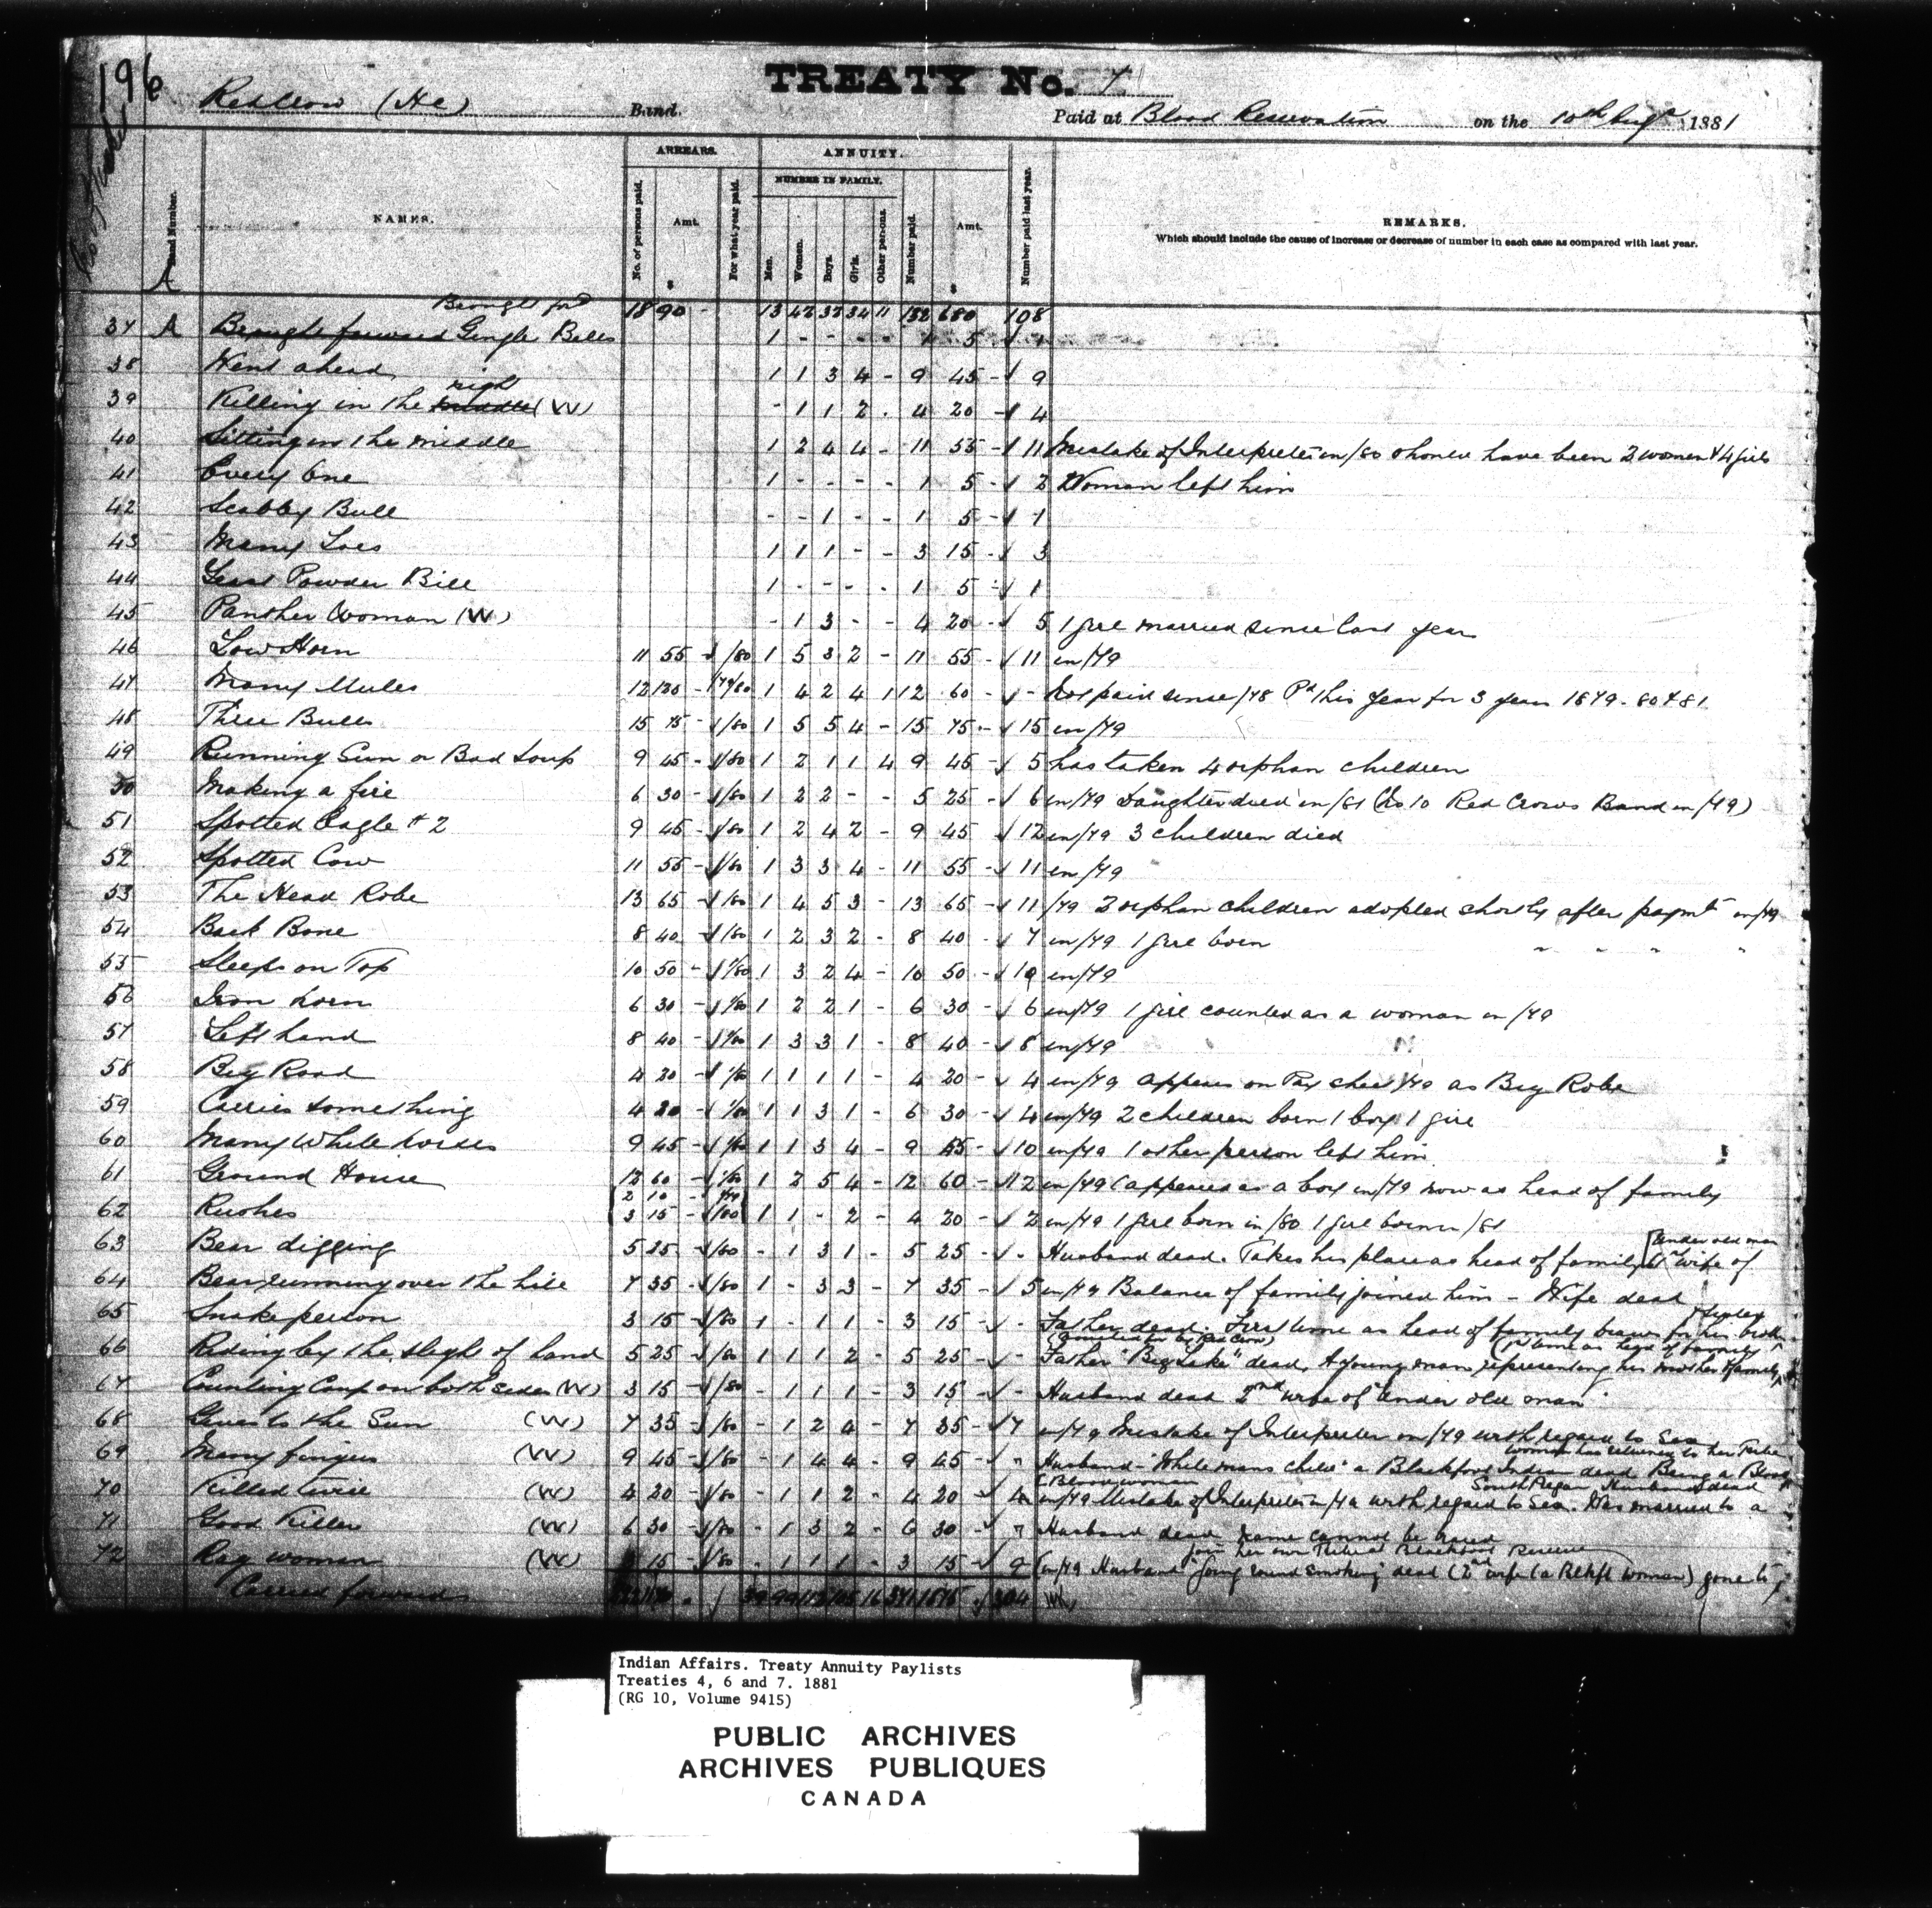 196
TREATY No. 7
Red Crow (HC) Band. Paid at Blood Reservation on the 10th Augt 1881
ARREARS. ANNUITY.
NUMBER IN FAMILY.
Band Number. NAMES. No. of persons paid. Amt. For what year paid. Men. Women. Boys. Girls. Other persons. Number paid. Amt. Number paid last year. REMARKS.
Which should include the cause of increase or decrease of number in each case as compared with last year.
$ $
A
Brought ford 18 90 - 13 42 32 34 11 132 680 108
37 A Brought forward Gingle Bells 1 - - - - 1 5 1
38 Went ahead 1 1 3 4 - 9 45 - √ 9
39 Killing in the middle night (W) - 1 1 2 . 4 20 - √ 4
40 Sitting in the middle 1 2 4 4 - 11 55 - √ 11 Mistake of Interpreter in /80 should have been 2 women & 4 girls
41 Every One 1 - - - - 1 5 - √ 2 Woman left him
42 Scabby Bull - - 1 - - 1 5 - √ 1
43 Many Toes 1 1 1 - - 3 15 - √ 3
44 Powder Bill 1 - - - . 1 5 - √ 1
45 Panther Woman (W) - 1 3 - - 4 20 - √ 5 1 girl married since last year
46 Low Horn 11 55 - √ /80 1 5 3 2 - 11 55 - √ 11 in /79
47 Many Mules 12 120 - 79/80 1 4 2 4 1 12 60 - √ - Not paid since /78 Pd this year for 3 years 1879 - 80 & 81
48 Three Bulls 15 75 - √ /80 1 5 5 4 - 15 75 - √ 15 in /79
49 Running Sun or Bad Soup 9 45 - √ /80 1 2 1 1 4 9 45 - √ 5 has taken 4 orphan children
50 Making a fire 6 30 - √ /80 1 2 2 - - 5 25 - √ 6 in /79 Daughter died in /81 (No 10 Red Crows Band in /79)
51 Spotted Eagle # 2 9 45 - √ /80 1 2 4 2 - 9 45 √ 12 in /79 3 children died
52 Spotted Cow 11 55 - √ /80 1 3 3 4 - 11 55 - √ 11 in /79
53 The Head Robe 13 65 - √ /80 1 4 5 3 - 13 65 - √ 11 /79 2 orphan children adopted shortly after paymt in /79
54 Back Bone 8 40 - √ /80 1 2 3 2 - 8 40 - √ 7 in /79 1 girl born " " " "
55 Sleeps on Top 10 50 - √ /80 1 3 2 4 - 10 50 - √ 10 in /79
56 Iron horn 6 30 - √ /80 1 2 2 1 - 6 30 - √ 6 in /79 1 girl counted as a woman in /79
57 Left hand 8 40 - √ /80 1 3 3 1 - 8 40 - √ 8 in /79
58 Big Road 4 20 - √ /80 1 1 1 1 - 4 20 - √ 4 in /79 appears on Pay sheet /79 as Big Robe
59 Carries something 4 20 - √ /80 1 1 3 1 - 6 30 - √ 4 in /79 2 children born 1 boy 1 girl
60 Many White horses 9 45 - √ /80 1 1 3 4 - 9 45 - √ 10 in /79 1 other person left him
61 Ground House 12 60 - √ /80 1 2 5 4 - 12 60 - √ 12 in /79 (appeared as a boy in /79 now as head of family
2 10 -
62 Rushes 3 15 - √ /80 1 1 - 2 - 4 20 - √ 2 in /79 1 girl born in /80 1 girl born in /81
63 Bear digging 5 25 - √ /80 - 1 3 1 - 5 25 - √ - Husband dead. Takes his place as head of family 1st wife of [Under old man
64 Bear running over the hill 7 35 - √ /80 1 - 3 3 - 7 35 - √ 5 in /79 Balance of family joined him - Wife dead
65 Snake person 3 15 - √ /80 1 - 1 1 - 3 15 - √ - Father dead. First time as head of family draws for his broth & sister
66 Riding by the sleight of hand 5 25 - √ /80 1 1 1 2 - 5 25 - √ - Father "Big Snake" dead, A young man representing his mother & family (1st time as head of family
67 Counting Coup on both sides (W) 3 15 - √ /80 - 1 1 1 - 3 15 - √ - Husband dead 2nd wife of "Under old man"
68 Gives to the Sun (W) 7 35 - √ /80 - 1 2 4 - 7 35 - √ 7 in /79 Mistake of Interpreter in /79 with regard to Sex
69 Many fingers (W) 9 45 - √ /80 - 1 4 4 - 9 45 - √ " Husband - "White mans child" a Blackfoot Indian dead Being a Blood woman has returned to her Tribe
70 Killed twice (W) 4 20 - √ /80 - 1 1 2 - 4 20 √ 4 in /79 Mistake of Interpreter in /79 with regard to Sex. Was married to a South Pegan Husband dead (Blood woman
71 Good Killer (W) 6 30 - √ /80 - 1 3 2 - 6 30 - √ " Husband dead name cannot be had
72 Rag woman (W) 3 15 - √ /80 - 1 1 1 - 3 15 - √ 9 in /79 Husband "Going round smoking" dead (2nd wife (a Blkft woman) gone to join her own Tribe at Blackfoot Reserve
Carried forward 99 16 341 304
Indian Affairs. Treaty Annuity Paylists
Treaties 4, 6 and 7. 1881
(RG 10, Volume 9415)
PUBLIC ARCHIVES
ARCHIVES PUBLIQUES
CANADA